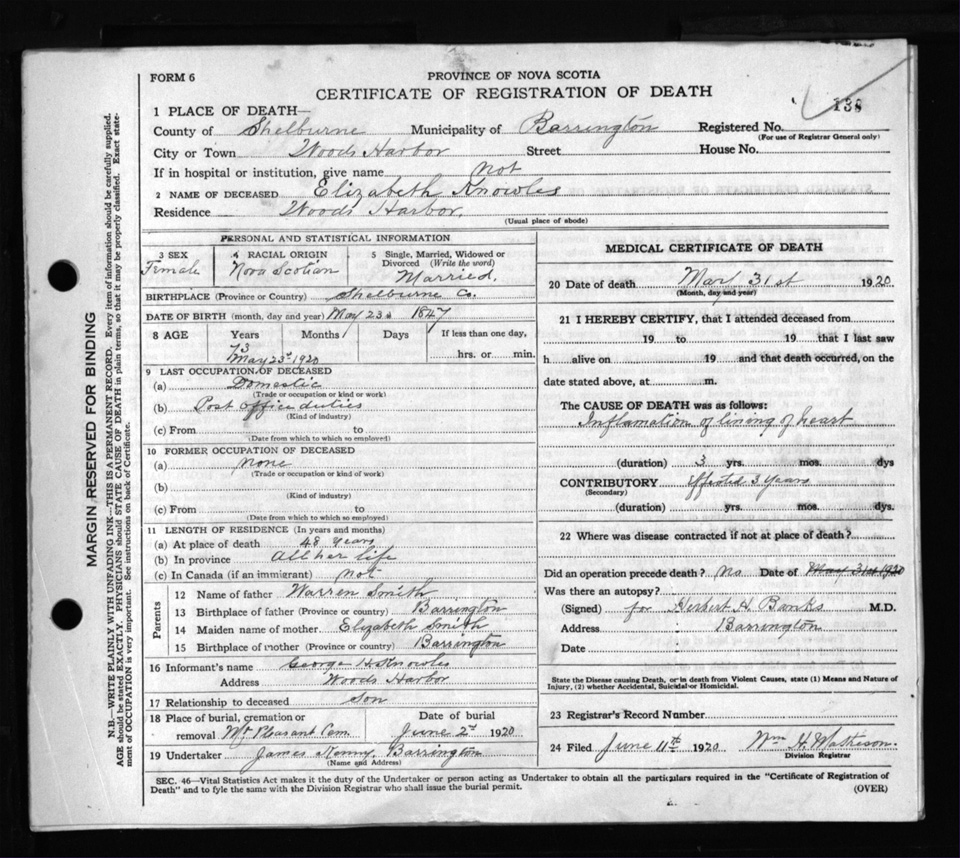 FORM 6
PROVINCE OF NOVA SCOTIA
CERTIFICATE OF REGISTRATION OF DEATH
138
1 PLACE OF DEATH—
County of Shelburne Municipality of Barrington Registered No.
(For use of Registrar General only)
City or Town Woods Harbor Street House No.
If in hospital or institution, give name not
2 NAME OF DECEASED Elizabeth Knowles
Residence Woods Harbor.
(Usual place of abode)
MARGIN RESERVED FOR BINDING
N.B.—WRITE PLAINLY WITH UNFADING INK—THIS IS A PERMANENT RECORD. Every item of information should be carefully supplied.
AGE should be stated EXACTLY. PHYSICIANS should STATE CAUSE OF DEATH in plain terms, so that it may be properly classified. Exact state-
ment of OCCUPATION is very important. See instructions on back of Certificate.
PERSONAL AND STATISTICAL INFORMATION
3 SEX
Female
4 RACIAL ORIGIN
Nova Scotian
5 Single, Married, Widowed or
Divorced (Write the word)
Married.
BIRTHPLACE (Province or Country) Shelburne Co.
DATE OF BIRTH (month, day and year) May 23d 1847
8 AGE Years Months Days If less than one day,
73
May 23d 1920
hrs. or min.
9 LAST OCCUPATION OF DECEASED
(a) Domestic
(Trade or occupation or kind or work)
(b) Post office duties
(Kind of industry)
(c) From to
(Date from which to which so employed)
10 FORMER OCCUPATION OF DECEASED
(a) none
(Trade or occupation or kind of work)
(b)
(Kind of industry)
(c) From to
(Date from which to which so employed)
11 LENGTH OF RESIDENCE (In years and months)
(a) At place of death 48 years
(b) In province All her life
(c) In Canada (if an immigrant) not
Parents
12 Name of father Warren Smith
13 Birthplace of father (Province or country) Barrington
14 Maiden name of mother Elizabeth Smith
15 Birthplace of mother (Province or country) Barrington
16 Informant's name George H Knowles
Address Woods Harbor
17 Relationship to deceased Son
18 Place of burial, cremation or
removal Mt Pleasant Cem.
Date of burial
June 2d 1920
19 Undertaker James Kenny, Barrington
(Name and Address)
MEDICAL CERTIFICATE OF DEATH
20 Date of death May 31st 1920
(Month, day and year)
21 I HEREBY CERTIFY, that I attended deceased from
19 to 19 that I last saw
h alive on 19 and that death occurred, on the
date stated above, at m.
The CAUSE OF DEATH was as follows:
Inflamation of lining of heart
(duration) 3 yrs. mos. dys
CONTRIBUTORY Effected 3 years
(Secondary)
(duration) yrs. mos. dys.
22 Where was disease contracted if not at place of death?
Did an operation precede death? No Date of May 31st 1920
Was there an autopsy?
(Signed) for Herbert H. Banks M.D.
Address Barrington
Date
State the Disease causing Death, or in death from Violent Causes, state (1) Means and Nature of
Injury, (2) whether Accidental, Suicidal or Homicidal.
23 Registrar's Record Number
24 Filed June 11th 1920 Wm H. Matheson.
Division Registrar
SEC. 46—Vital Statistics Act makes it the duty of the Undertaker or person acting as Undertaker to obtain all the particulars required in the "Certificate of Registration of
Death" and to fyle the same with the Division Registrar who shall issue the burial permit.
(OVER)